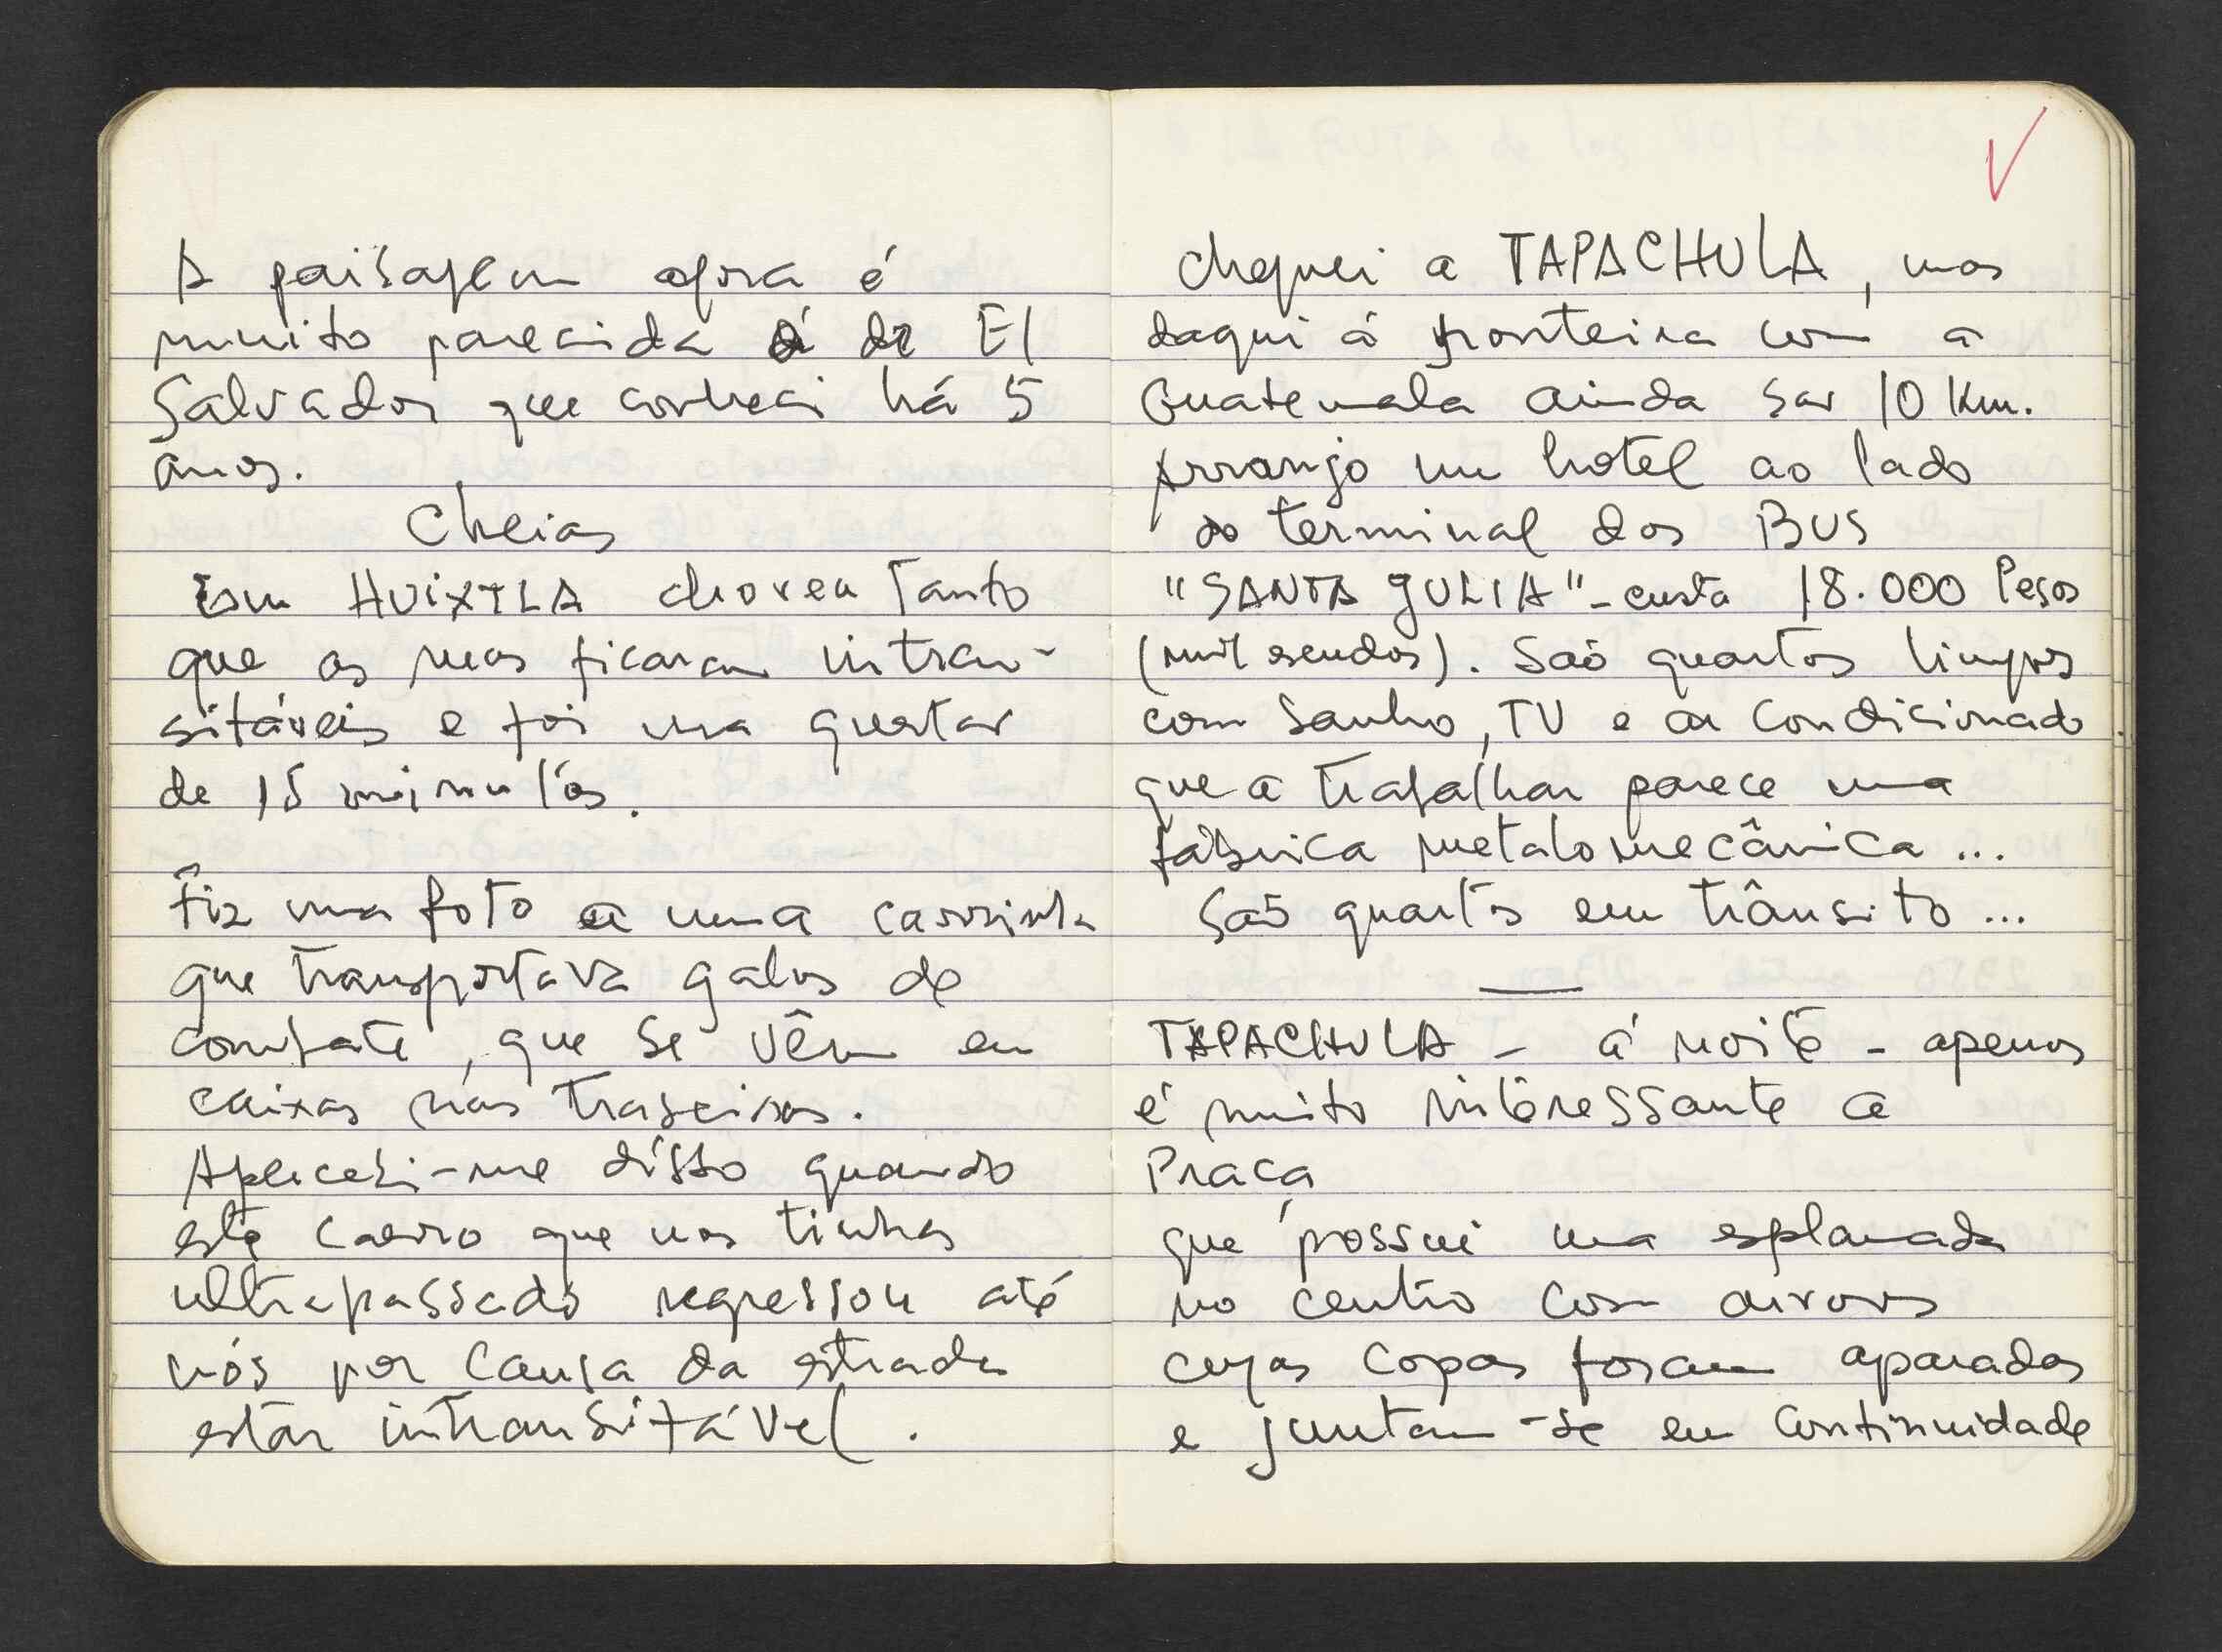 A paisagem agora é
muito parecida à de El
Salvador que conheci há 5
anos.
Cheias
Em HUIXTLA choveu tanto
que as ruas ficaram intran-
sitáveis e foi uma questão
de 15 minutos.
Fiz uma foto a uma carrinha
que transportava galos de
combate, que se vêm em
caixas nas traseiras.
Apercebi-me disso quando
este carro que nos tinha
ultrapassado regressou até
nós por causa da estrada
estar intransitável.
Cheguei a TAPACHULA, mas
daqui à fronteira com a
Guatemala ainda são 10 Km.
Arranjo um hotel ao lado
do terminal dos BUS
"SANTA JULIA" - custa 18.000 Pesos
(mil escudos). São quartos limpos
com banho, TV e ar condicionado
que a trabalhar parece uma
fábrica metalomecânica ...
São quartos em trânsito ...
TAPACHULA - à noite - apenas
é muito interessante a
Praça
que possui uma esplanada
no centro com árvores
cujas copas foram aparadas
e juntam-se em continuidade